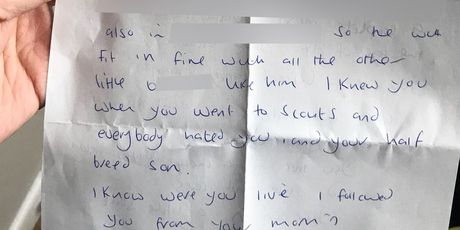 also in
So he will
fit in fine with all the other
little b
like him I knew you
when you went to scouts and
everybody hated you, and your half
breed son.
I know were you live I followed
you from your mom's